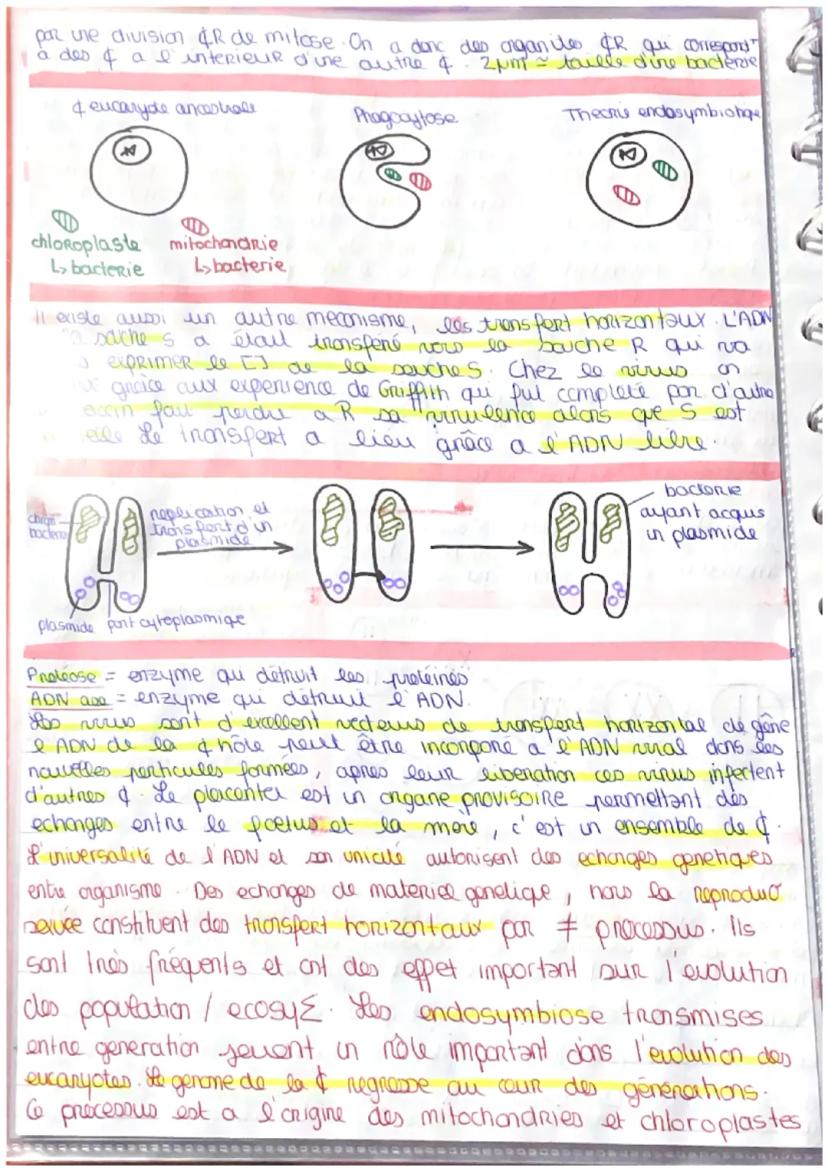 par une division ¢R de mitose. On a donc des organites ¢R qui correspont
a des ¢ a l'interieur d'une autre ¢. 2µm = taille d'une bacterie
¢ eucaryote ancestrale
Phagocytose
Theorie endosymbiotiq
chloroplaste
↳ bacterie
mitochondrie
↳ bacterie
Il existe aussi un autre mecanisme, les transfert horizontaux. L'ADN
souche S a était transféré vers la souche R qui va
exprimer le [] de la souche S. Chez le virus on
grâce aux experience de Griffith qui fut completé par d'autre
fait perdre a R sa virulence alors que S est
elle Le transfert a lieu grâce a l'ADN libre.
chrom
bacterie
replication et
transfert d'un
plasmide
bacterie
ayant acquis
un plasmide
plasmide pont cytoplasmiqe
Protéase = enzyme qui détruit les protéines
ADN ase = enzyme qui détruit l'ADN.
Les virus sont d'excellent vecteurs de transfert horizontal de gène
l'ADN de la ¢ hôte peut être incorporé a l'ADN viral dans les
nouvelles particules formées, apres leur liberation ces virus infectent
d'autres ¢. Le placenta est un organe provisoire permettant des
echanges entre le foetus et la mère, c'est un ensemble de ¢.
L'universalité de l'ADN et son unicité autorisent des echanges genetiques
entre organisme. Des echanges de materiel genetique, hors la reproduc
sexuée constituent des transfert horizontaux par ≠ processus. Ils
sont très fréquents et ont des effet important sur l'evolution
des population / ecosyΣ. Les endosymbiose transmises
entre generation jouent un rôle important dans l'evolution des
eucaryotes. Le genome de la ¢ regresse au cour des générations.
Ce processus est a l'origine des mitochondries et chloroplastes